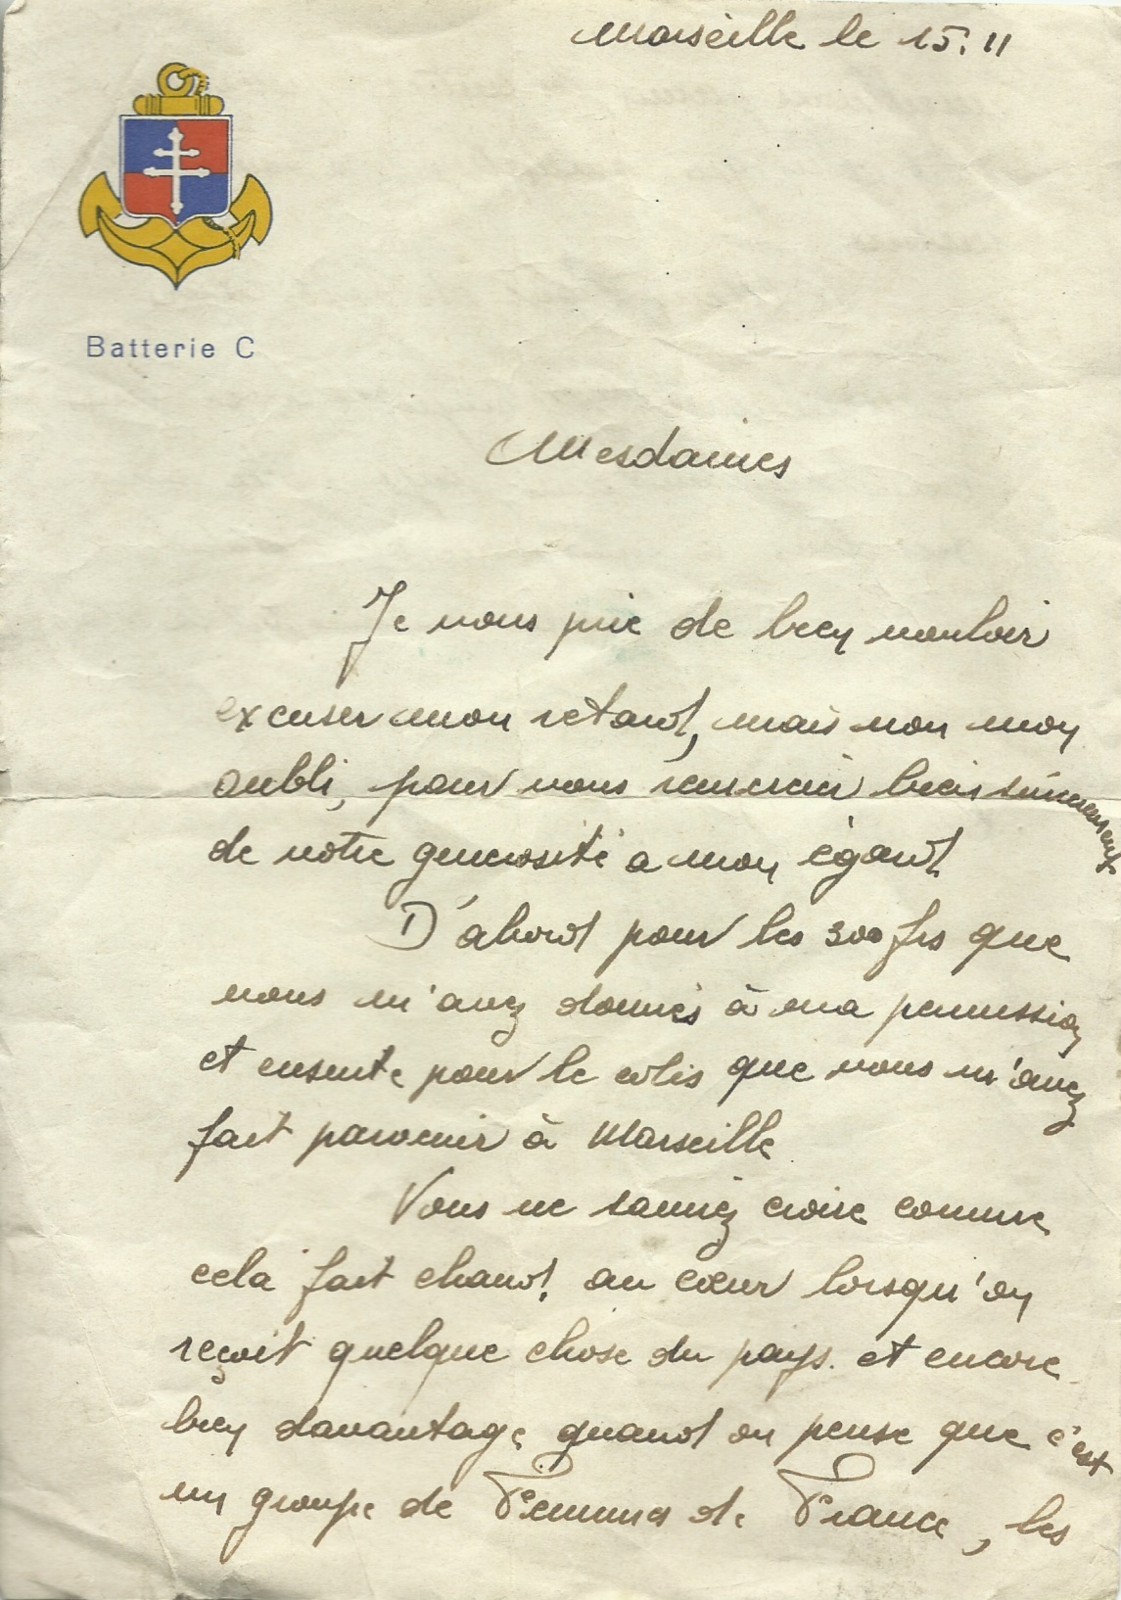 Marseille le 15.11
Batterie C
Mesdames
Je vous prie de bien vouloir
excuser mon retard, mais non mon
oubli, pour vous remercier bien sincerement
de votre generosité a mon égard.
D'abord pour les 300 frs que
vous m'avez donnés à ma permission
et ensuite pour le colis que vous m'avez
fait parvenir à Marseille.
Vous ne sauriez croire comme
cela fait chaud, au cœur lorsqu'on
reçoit quelque chose du pays. et encore
bien davantage quand on pense que c'est
un groupe de Femmes de France, les